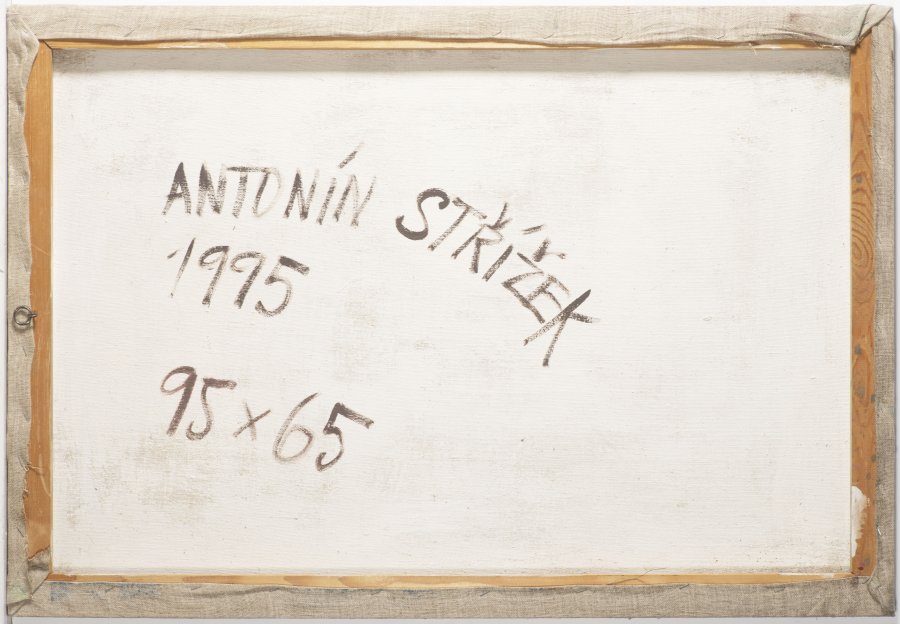 ANTONÍN STŘÍŽEK
1995
95 x 65